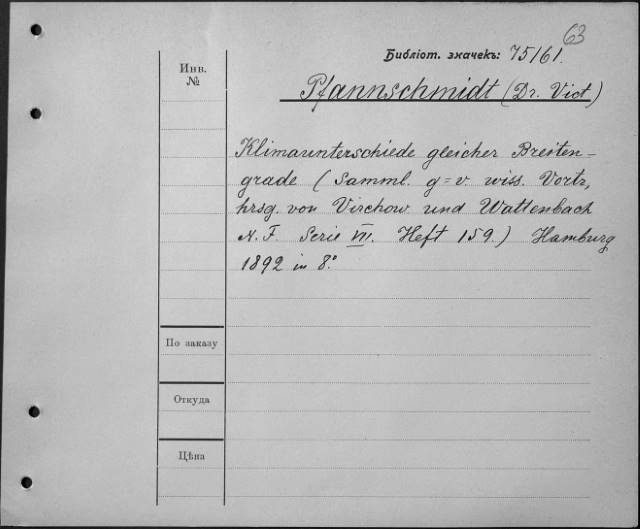 63
Библіот. значекъ: 75/61.
Инв.
№
Pfannschmidt (Dr. Vict)
Klimaunterschiede gleicher Breiten-
grade (Samml. g=v. wiss. Vortr,
hrsg. von Virchow und Wattenbach
N. F. Serie VII. Heft 159.) Hamburg
1892 in 8°
По заказу
Откуда
Цѣна